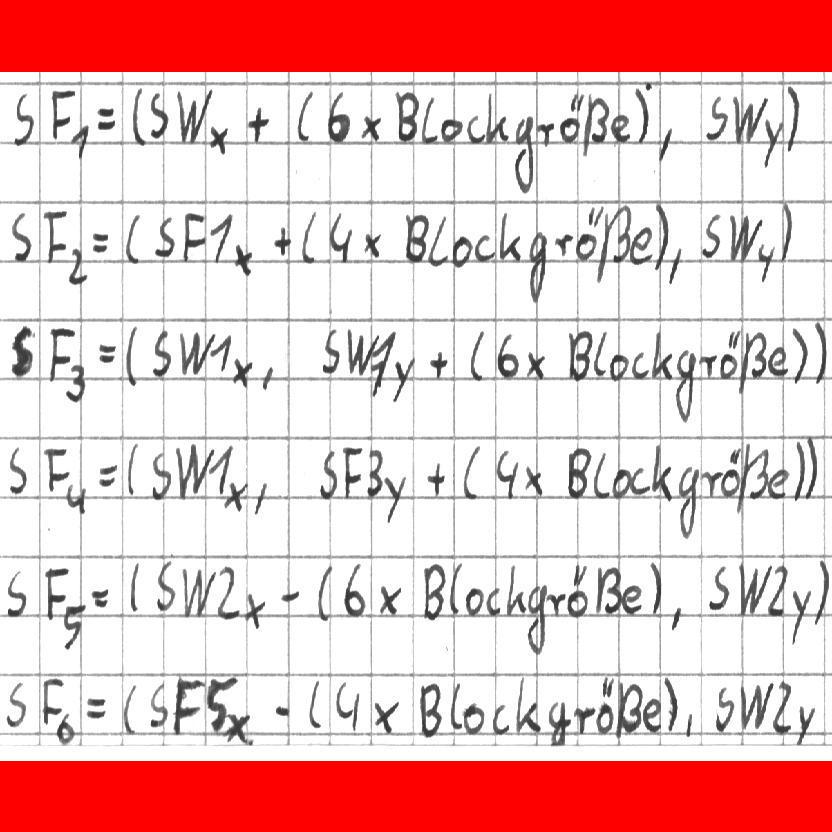 SF₁ = (SWₓ + (6 x Blockgröße), SWy)
SF₂ = (SF1ₓ + (4 x Blockgröße), SWy)
SF₃ = (SW1ₓ, SW1y + (6x Blockgröße))
SF₄ = (SW1ₓ, SF3y + (4x Blockgröße))
SF₅ = (SW2ₓ - (6 x Blockgröße), SW2y)
SF₆ = (SF5ₓ - (4 x Blockgröße), SW2y